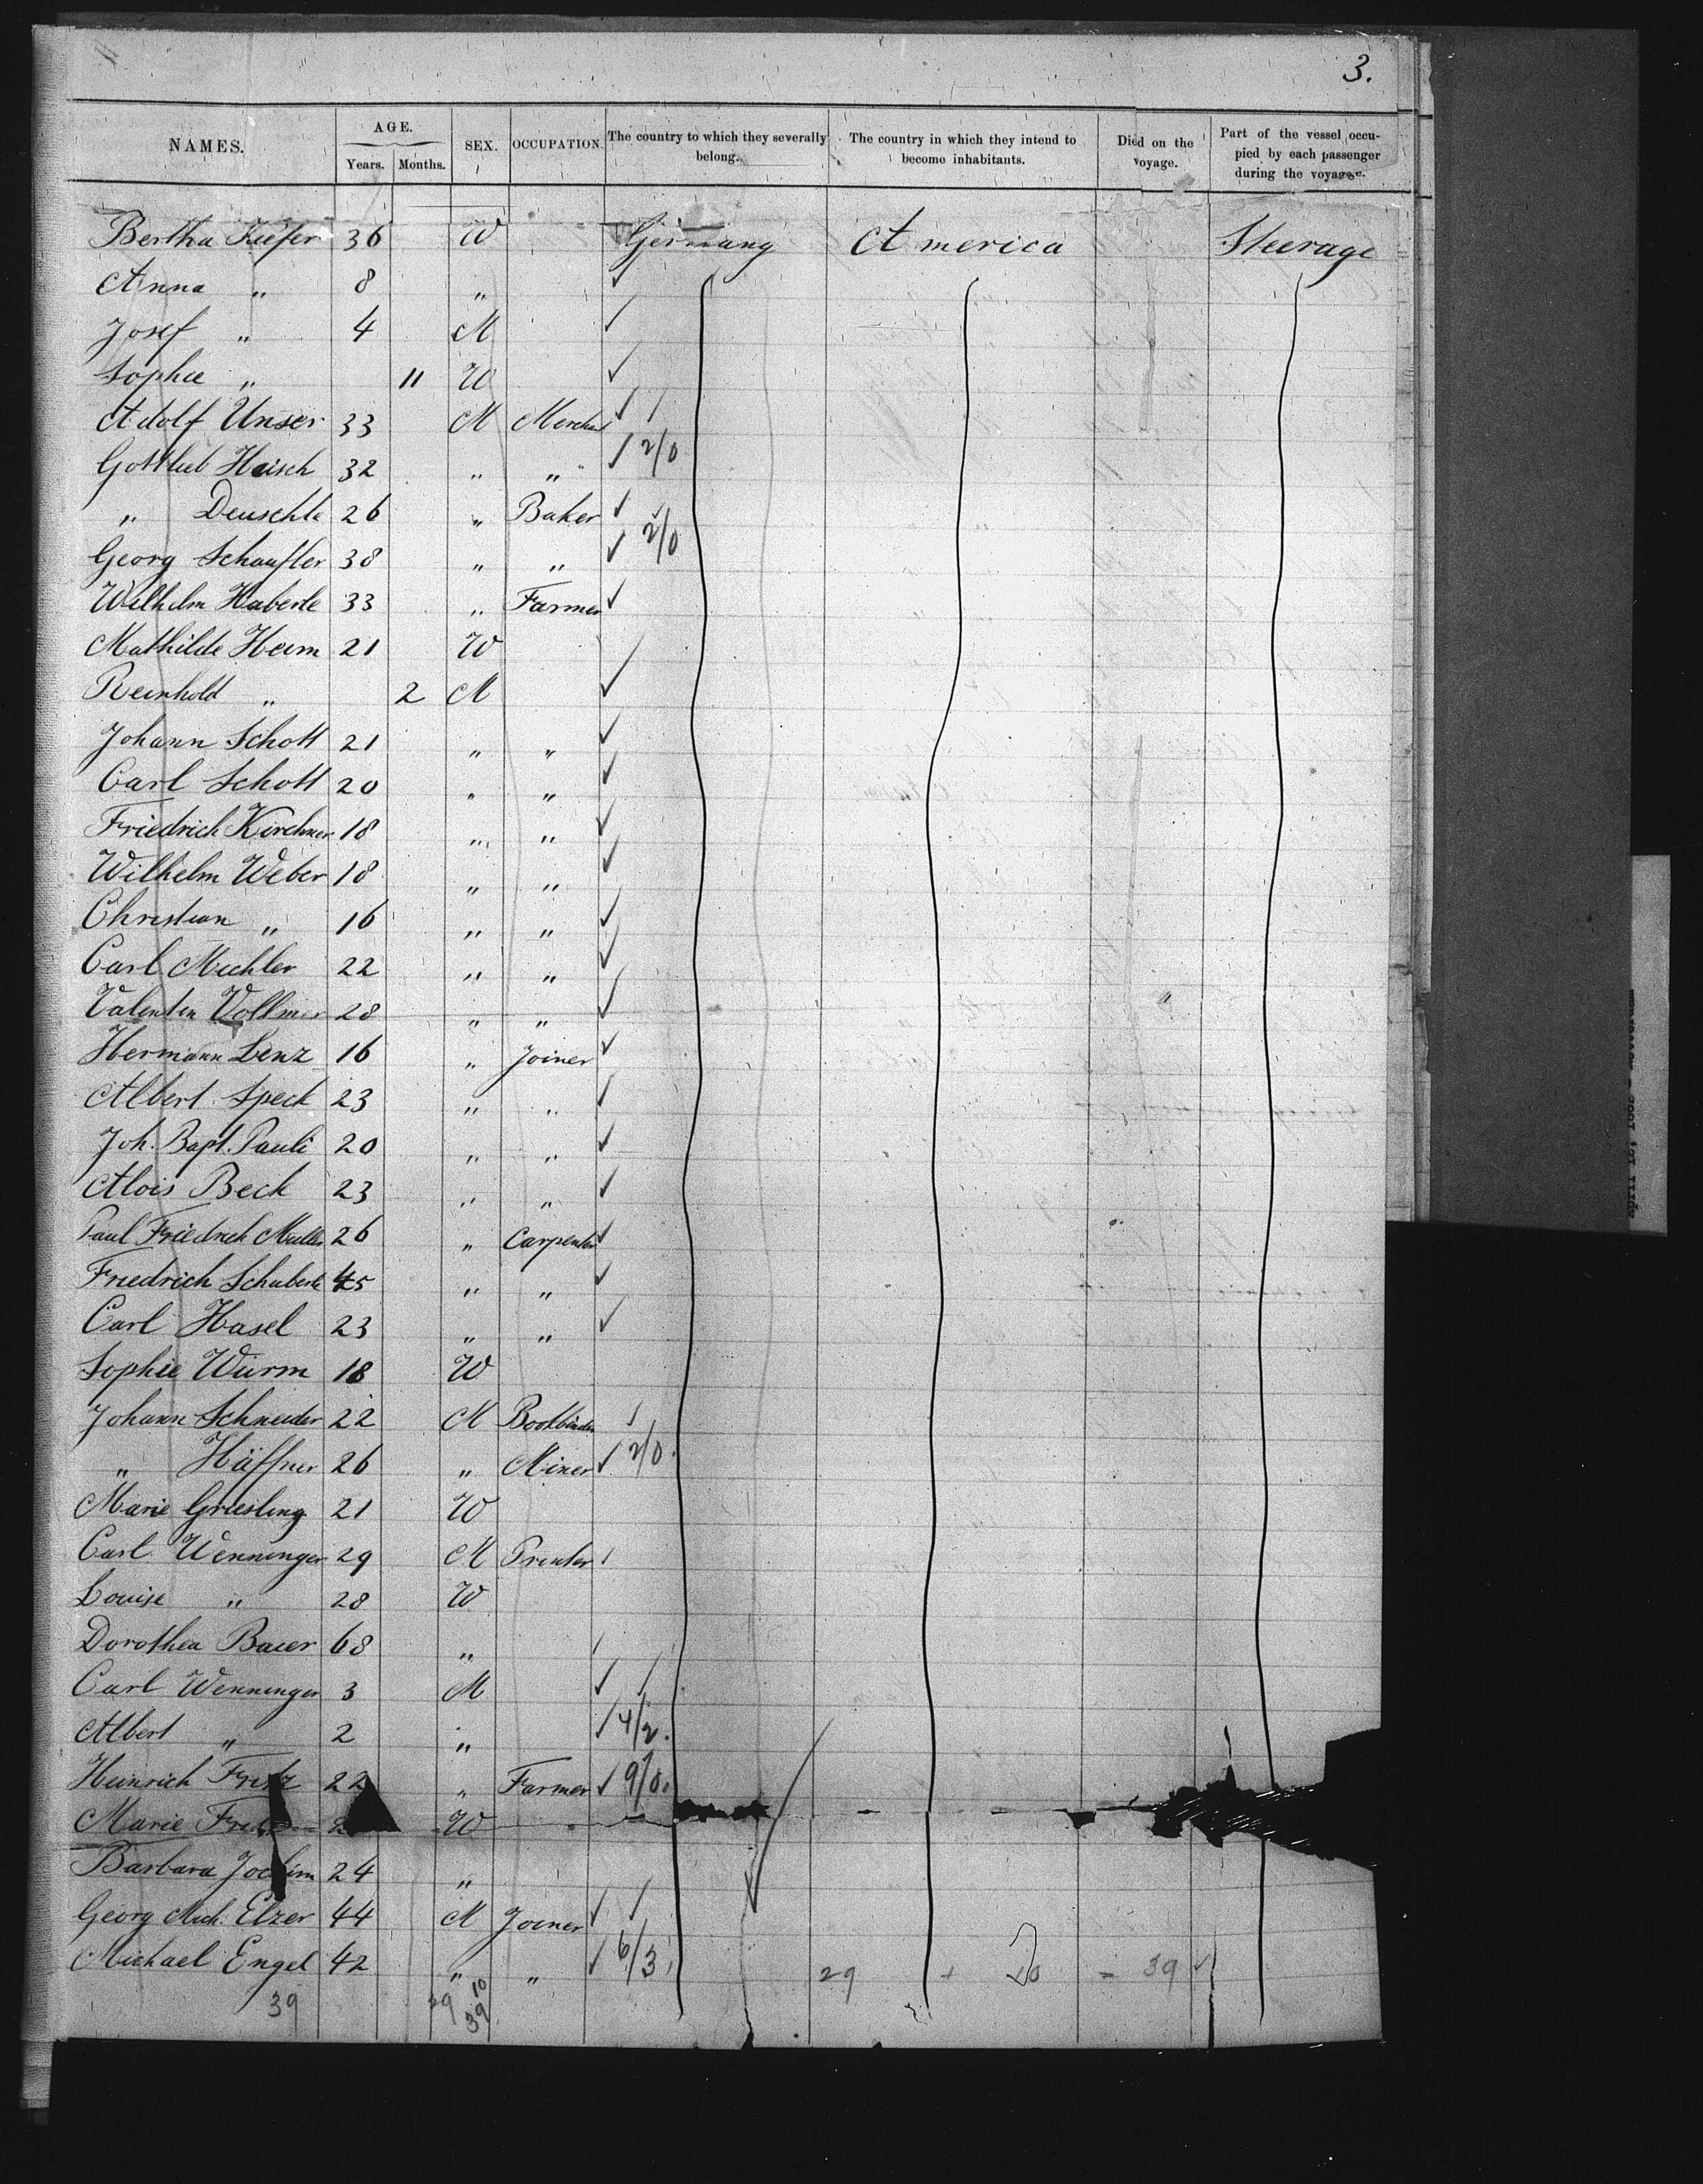 3.
NAMES. AGE. Years. Months. SEX. OCCUPATION. The country to which they severally belong. The country in which they intend to become inhabitants. Died on the voyage. Part of the vessel occupied by each passenger during the voyage.
Bertha Kiefer 36 W Germany America Steerage
Anna " 8 "
Josef " 4 M
Sophie " 11 W
Adolf Unser 33 M Merchant
Gottlieb Heisch 32 " " 2/0
" Deuschle 26 " Baker
Georg Schaufler 38 " " 2/0
Wilhelm Haberle 33 " Farmer
Mathilde Heim 21 W
Reinhold " 2 M
Johann Schott 21 " "
Carl Schott 20 " "
Friedrich Kirchner 18 " "
Wilhelm Weber 18 " "
Christian " 16 " "
Carl Michler 22 " "
Valentin Vollmer 28 " "
Hermann Lenz 16 " Joiner
Albert Speck 23 " "
Joh. Bapt. Pauli 20 " "
Alois Beck 23 " "
Paul Friedrich Muller 26 " Carpenter
Friedrich Schuberle 45 " "
Carl Hasel 23 " "
Sophie Wurm 18 W
Johann Schneider 22 M Bookbinder
" Häffner 26 " Miner 2/0.
Marie Griesling 21 W
Carl Wenninger 29 M Printer
Louise " 28 W
Dorothea Bauer 68 "
Carl Wenninger 3 M
Albert " 2 " 4/2.
Heinrich 22 " Farmer 9/0.
Marie W
Barbara Jochim 24 "
Georg Mich. Elzer 44 M Joiner
Michael Engel 42 " " 6/3
29 + 10 = 39
39 29 10
39